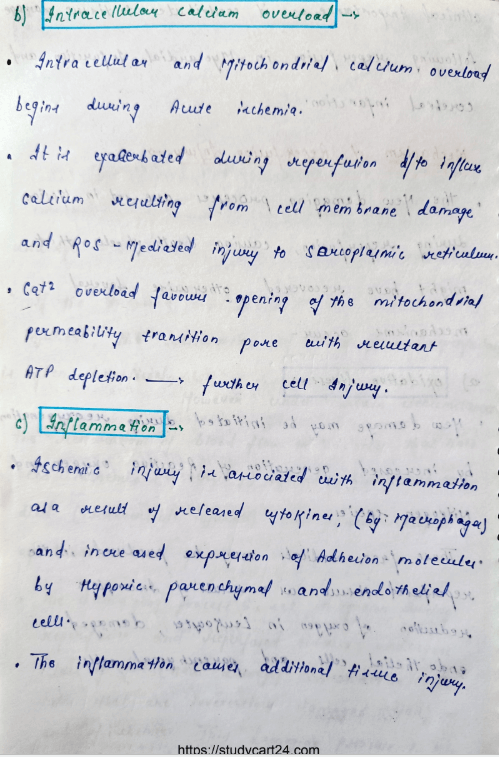 b) Intracellular calcium overload →
• Intracellular and Mitochondrial calcium overload
begins during Acute ischemia.
• It is exacerbated during reperfusion d/to influx
calcium resulting from cell membrane damage
and ROS - Mediated injury to Sarcoplasmic reticulum.
• Cat² overload favours opening of the mitochondrial
permeability transition pore with resultant
ATP depletion. → further cell Injury.
c) Inflammation →
• Ischemic injury is associated with inflammation
as a result of released cytokines, (by: Macrophages)
and increased expression of Adhesion molecules
by Hypoxic parenchymal and endothelial
cell.
• The inflammation causes additional tissue injury.
https://studycart24.com